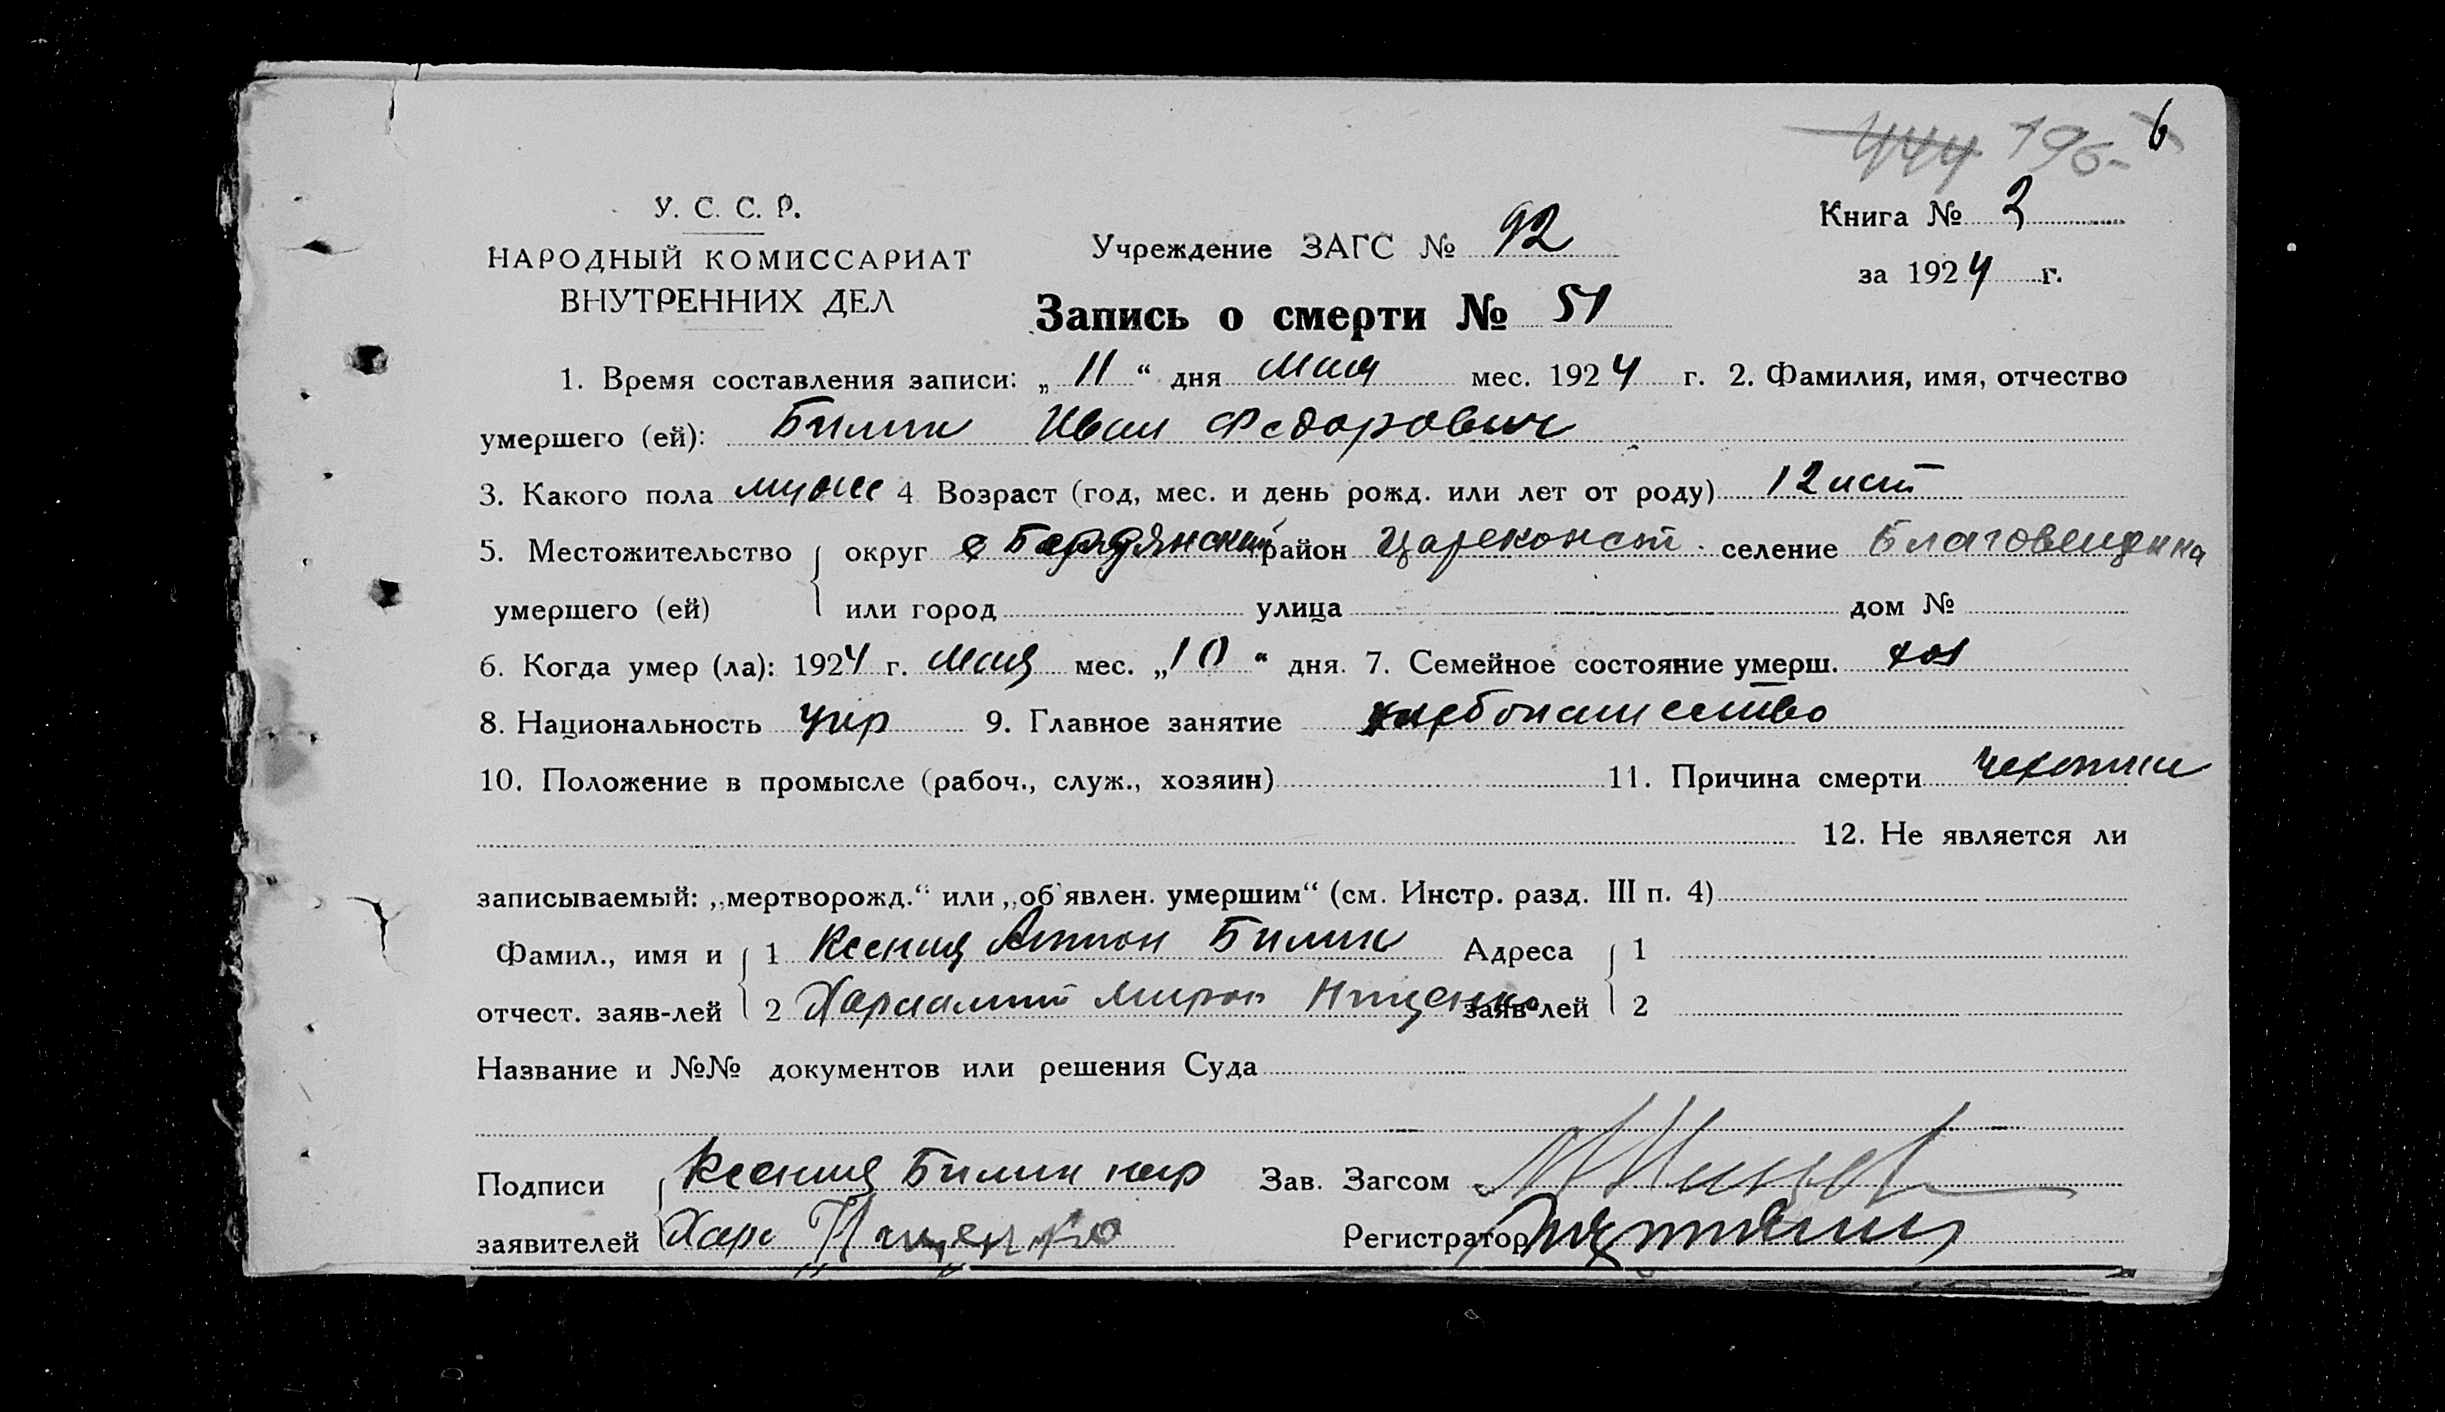 444 196 6
У. С. С. Р.
НАРОДНЫЙ КОМИССАРИАТ
ВНУТРЕННИХ ДЕЛ
Учреждение ЗАГС № 92
Книга № 2
за 1924 г.
Запись о смерти № 51
1. Время составления записи: „ 11 “ дня Мая мес. 1924 г. 2. Фамилия, имя, отчество
умершего (ей): Билик Иван Федорович
3. Какого пола муж 4 Возраст (год, мес. и день рожд. или лет от роду) 12 лет
5. Местожительство округ Бердянский район Цареконст. селение Благовещенка
умершего (ей) или город улица дом №
6. Когда умер (ла): 1924 г. Мая мес. „10 “ дня. 7. Семейное состояние умерш. хол
8. Национальность укр 9. Главное занятие хлебопашество
10. Положение в промысле (рабоч., служ., хозяин) 11. Причина смерти чехотки
12. Не является ли
записываемый: „мертворожд.“ или „об'явлен. умершим“ (см. Инстр. разд. III п. 4)
Фамил., имя и 1 Ксения Антон Билик Адреса 1
отчест. заяв-лей 2 Харлампий Мирон Нищенко заяв-лей 2
Название и №№ документов или решения Суда
Подписи Ксения Билик нгр Зав. Загсом
заявителей Харл Нищенко Регистратор